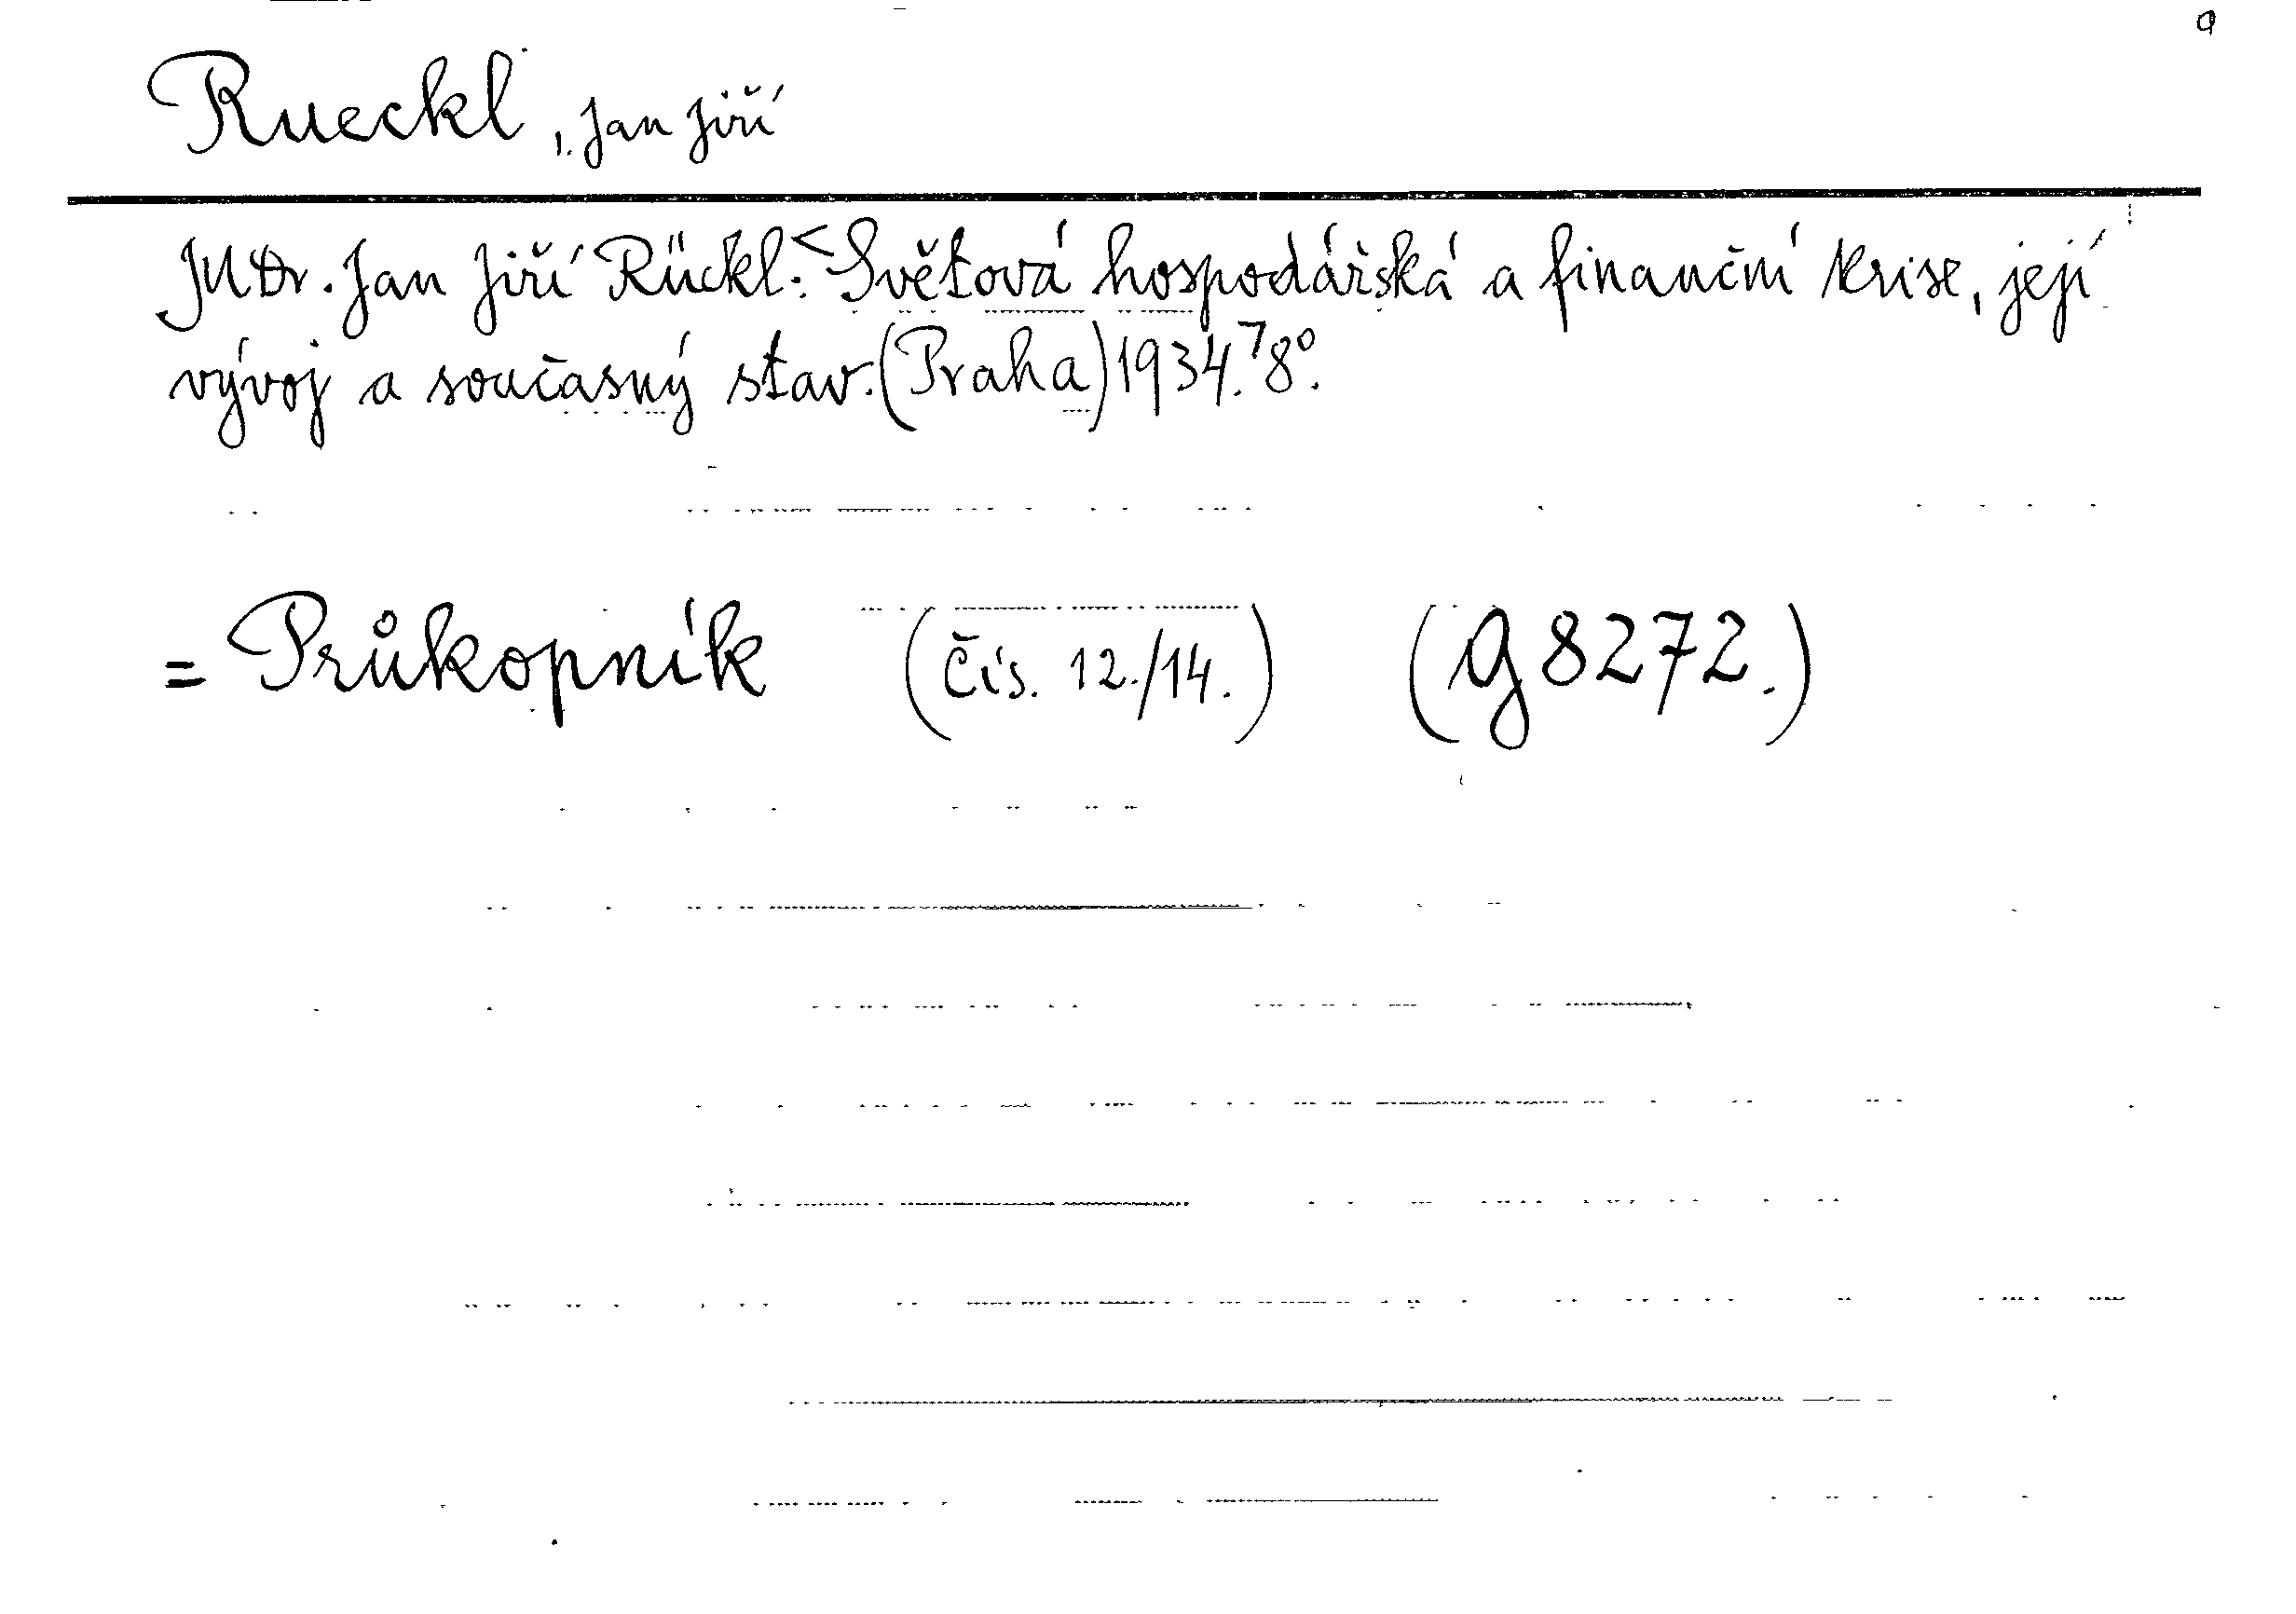 a
Rueckl, Jan Jiří
JUDr. Jan Jiří Rückl: <Světová hospodářská a finanční krise, její
vývoj a současný stav. (Praha) 1934.> 8°.
= Průkopník (Čís. 12./14.) (G 8272.)